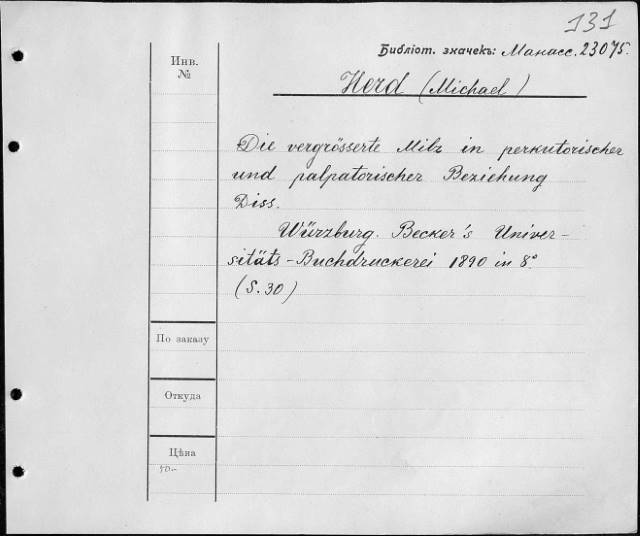 131
Библіот. значекъ: Манасс. 23075.
Инв. №
Herd (Michael)
Die vergrösserte Milz in perkutorischer
und palpatorischer Beziehung
Diss.
Würzburg. Becker's Univer-
sitäts-Buchdruckerei 1890 in 8°
(S. 30)
По заказу
Откуда
Цѣна
50.-